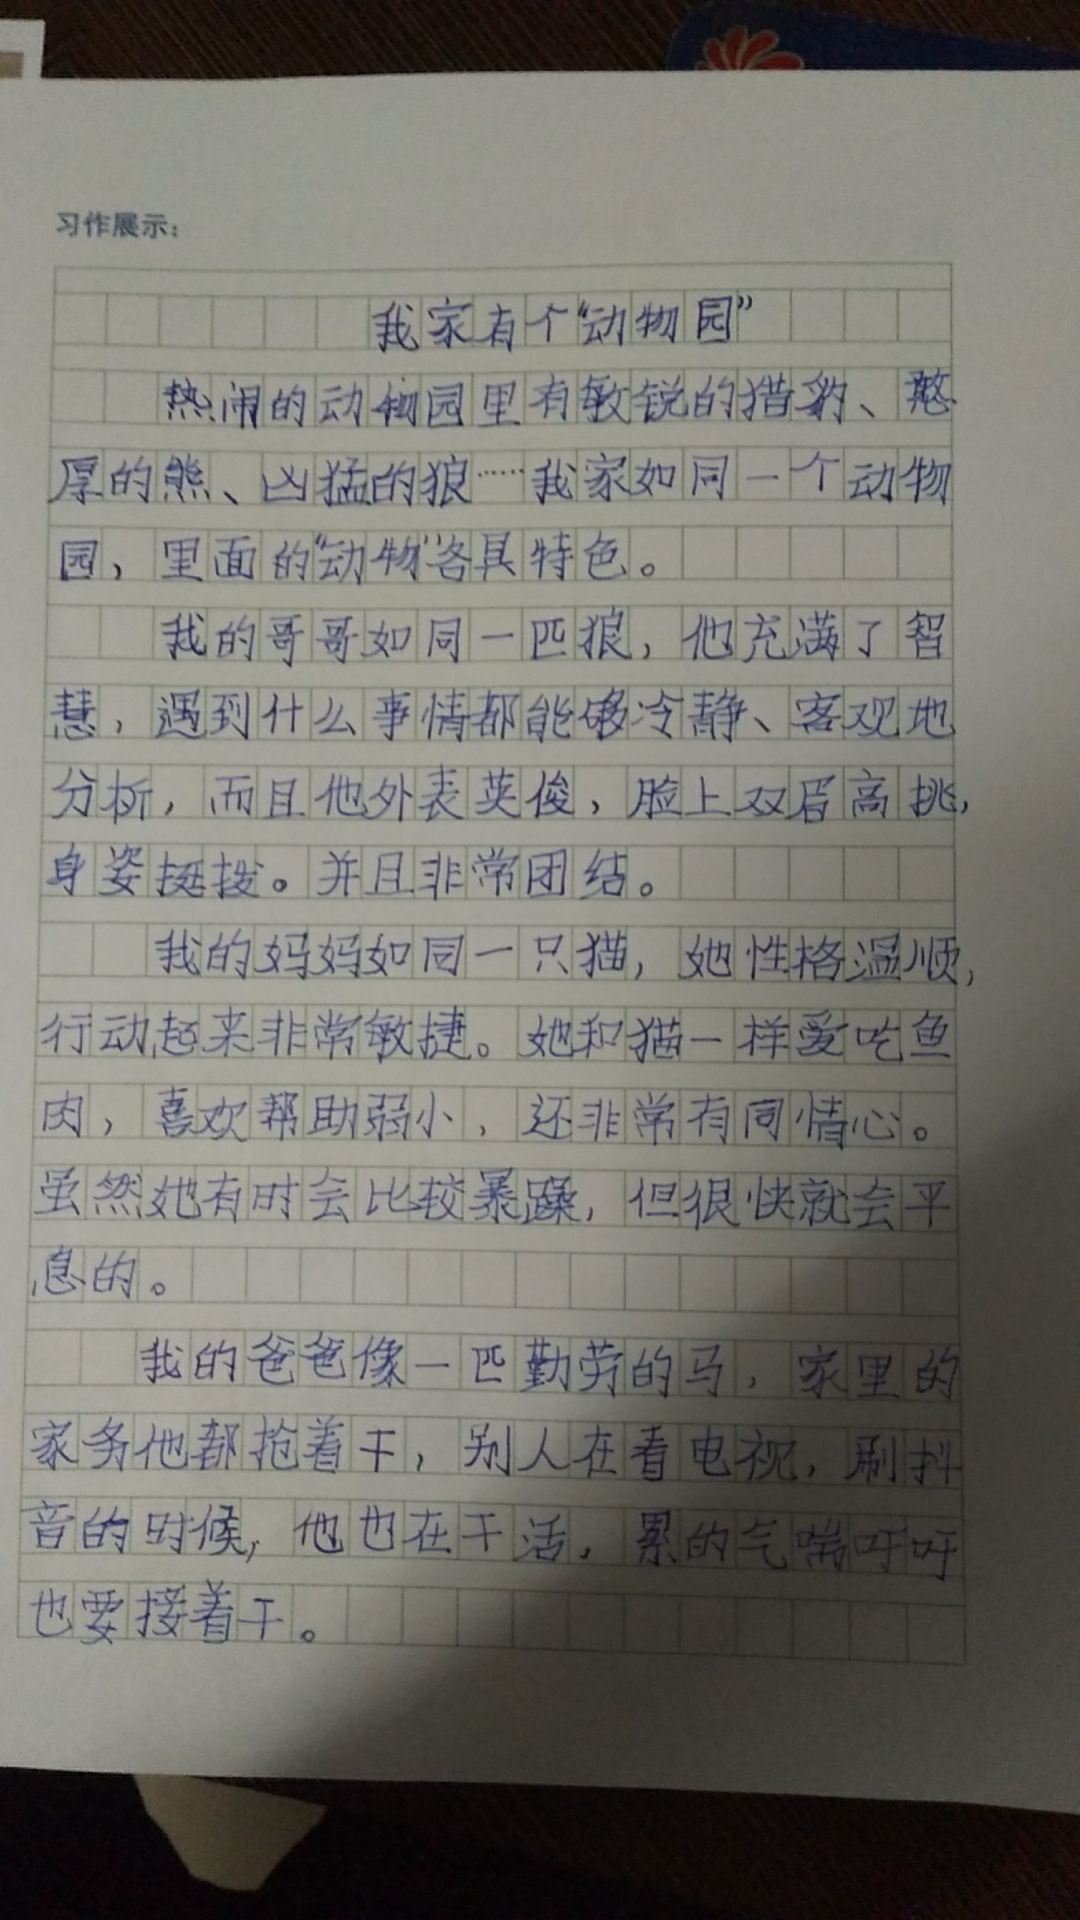 习作展示：
我家有个“动物园”
热闹的动物园里有敏锐的猎豹、憨
厚的熊、凶猛的狼……我家如同一个动物
园，里面的“动物”各具特色。
我的哥哥如同一匹狼，他充满了智
慧，遇到什么事情都能够冷静、客观地
分析，而且他外表英俊，脸上双眉高挑，
身姿挺拔。并且非常团结。
我的妈妈如同一只猫，她性格温顺，
行动起来非常敏捷。她和猫一样爱吃鱼
肉，喜欢帮助弱小，还非常有同情心。
虽然她有时会比较暴躁，但很快就会平
息的。
我的爸爸像一匹勤劳的马，家里的
家务他都抢着干，别人在看电视，刷抖
音的时候，他也在干活，累的气喘吁吁
也要接着干。